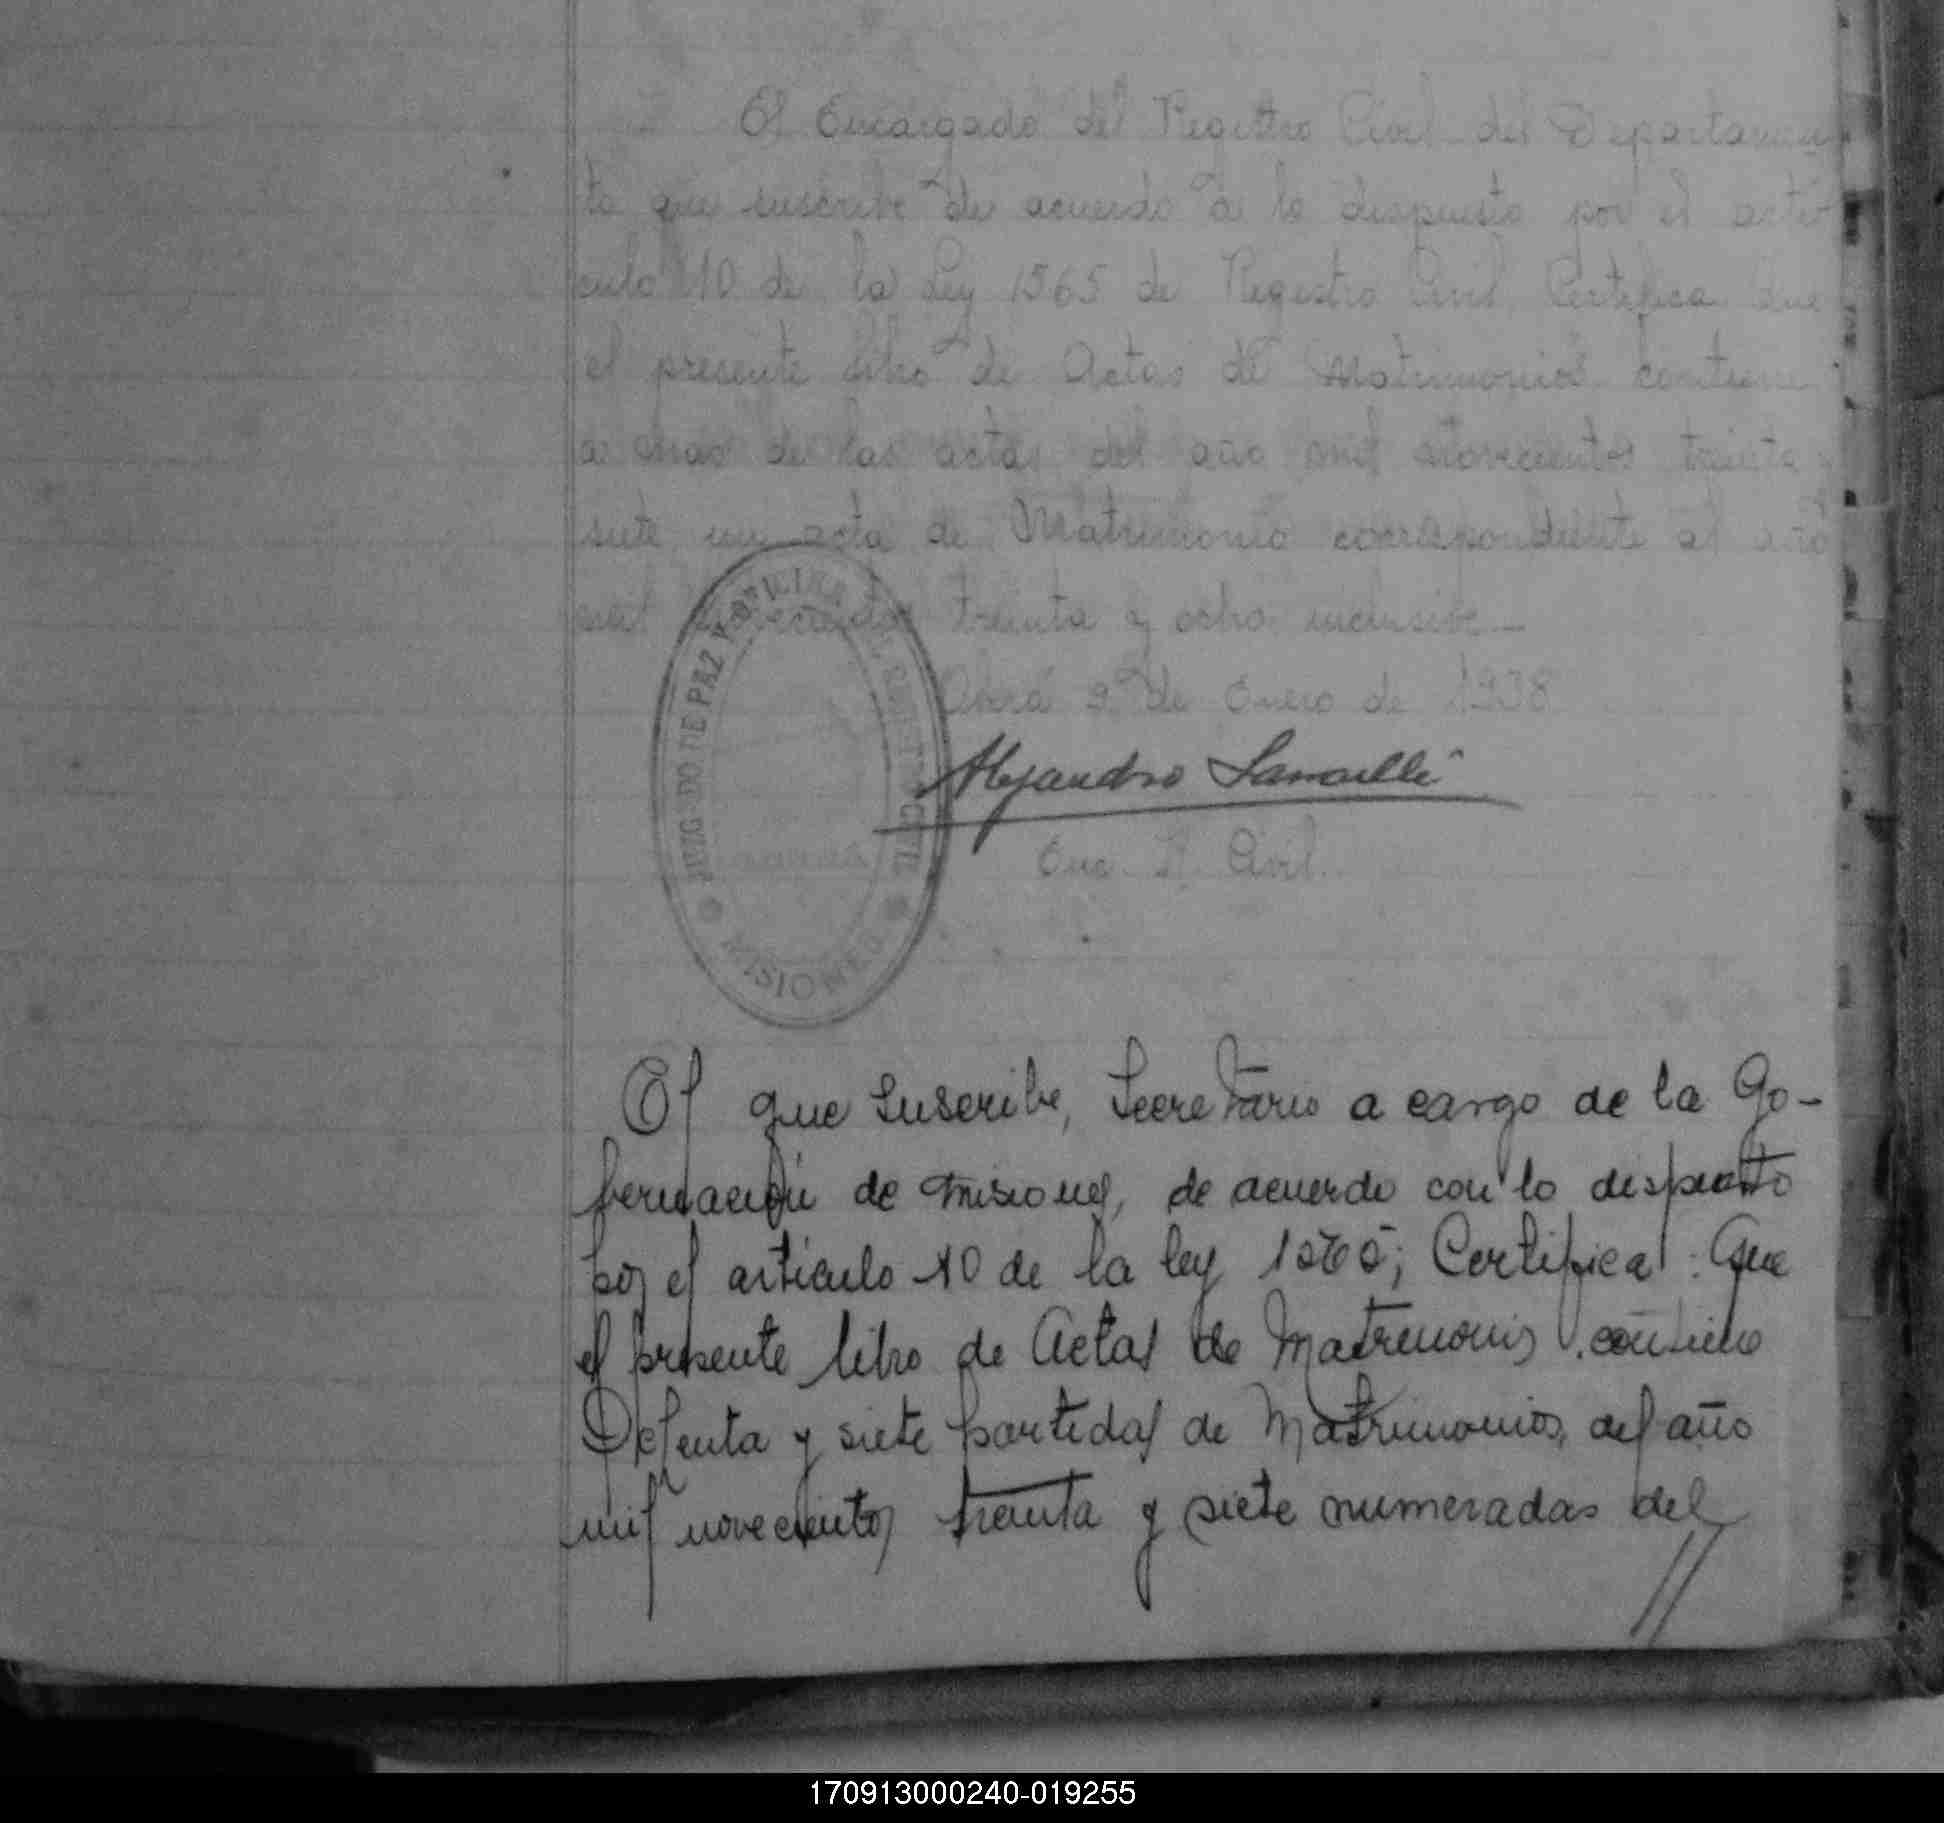 El Encargado del Registro Civil del Departamen
to que suscribe de acuerdo a lo dispuesto por el artí
culo 10 de la Ley 1565 de Registro Civil Certifica que
el presente libro de Actas de Matrimonios contiene
a mas de las actas del año mil novecientos treinta y
siete un acta de Matrimonio correspondiente al año
mil novecientos treinta y ocho inclusive—
9 de Enero de 1938
Alejandro
Enc. R. Civil
JUZGADO DE PAZ Y OFICINA DEL REGISTRO CIVIL
MISIONES
El que suscribe, Secretario a cargo de la Go-
bernación de Misiones, de acuerdo con lo dispuesto
por el artículo 10 de la ley 1565; Certifica: Que
el presente libro de Actas de Matrimonios contiene
y siete partidas de Matrimonios, del año
mil novecientos treinta y siete numeradas del
//
170913000240-019255